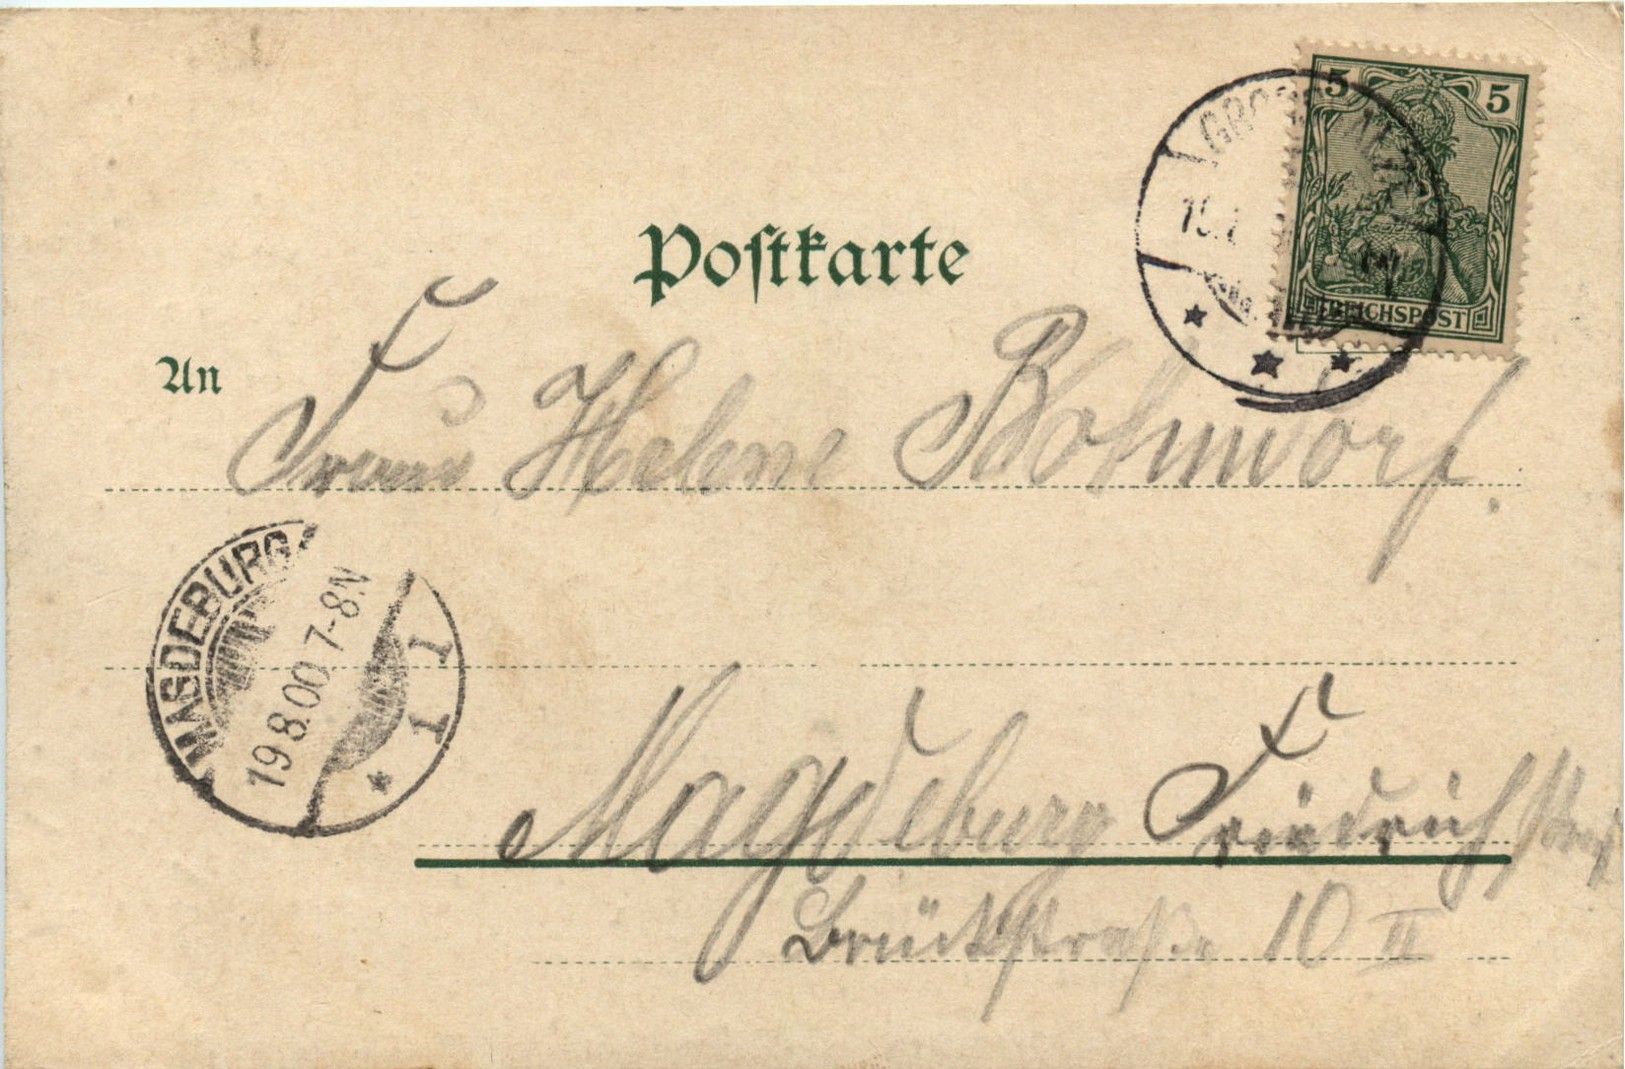 5 5
REICHSPOST
Postkarte
An
Frau Helene Bohndorf.
MAGDEBURG
19 8.00. 7-8N
Magdeburg Friedrich
Brückstraße 10 II